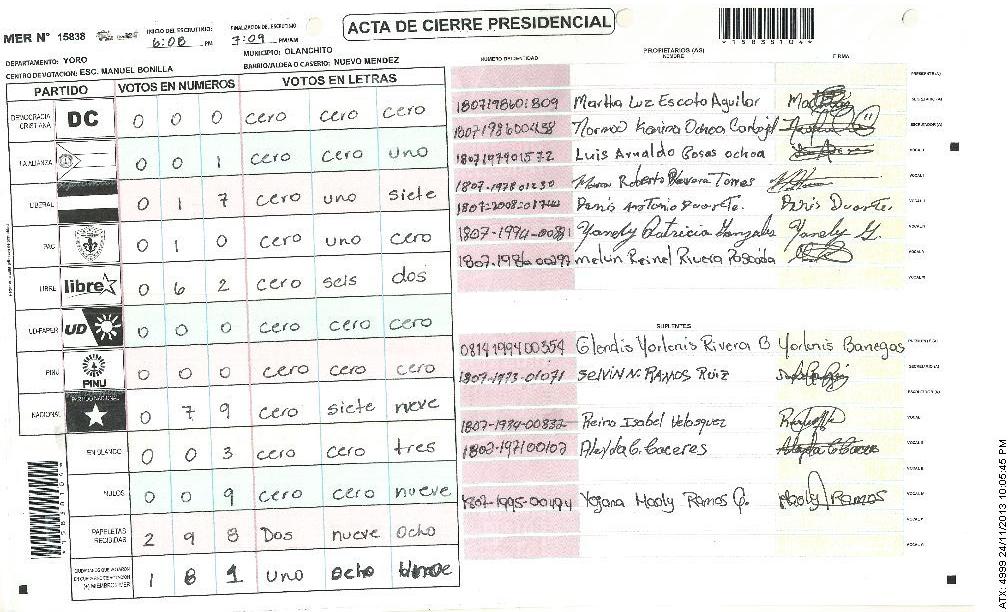 ACTA DE CIERRE PRESIDENCIAL
MER N° 15838
INICIO DEL ESCRUTINIO
6:08 PM
FINALIZACION DEL ESCRUTINIO
7:09 PM/AM
*15838104*
DEPARTAMENTO: YORO
MUNICIPIO: OLANCHITO
CENTRO DE VOTACION: ESC. MANUEL BONILLA
BARRIO/ALDEA O CASERIO: NUEVO MENDEZ
PARTIDO VOTOS EN NUMEROS VOTOS EN LETRAS
DEMOCRACIA CRISTIANA DC 0 0 0 cero cero cero
LA ALIANZA 0 0 1 cero cero uno
LIBERAL 0 1 7 cero uno siete
PAC 0 1 0 cero uno cero
LIBRE libre 0 6 2 cero seis dos
UD-FAPER UD 0 0 0 cero cero cero
PINU PINU 0 0 0 cero cero cero
NACIONAL PARTIDO NACIONAL 0 7 9 cero siete neve
EN BLANCO 0 0 3 cero cero tres
NULOS 0 0 9 cero cero nueve
PAPELETAS RECIBIDAS 2 9 8 Dos nueve ocho
CIUDADANOS QUE VOTARON (+) MIEMBROS MER 1 8 1 uno ocho
NUMERO DE IDENTIDAD PROPIETARIOS (AS) NOMBRE FIRMA
PRESIDENTE(A)
1807198601809 Martha Luz Escoto Aguilar SECRETARIO(A)
1807198600438 Karina Ochoa ESCRUTADOR(A)
1807197901572 Luis Arnaldo Rosas ochoa VOCAL I
1807-1978 01230 Roberto Torres VOCAL
1807-2008-01744 Denis Antonio Duarte. Denis Duarte. VOCAL
1807-1994-00881 Yanely Patricia Gonzales Yanely G. VOCAL
1807-1986 00297 melvin Reinel Rivera Posadas VOCAL
VOCAL
SUPLENTES
0814199400354 Glendis Yorlenis Rivera B Yorlenis Banegas PRESIDENTE(A)
1807-1973-01071 SELVIN N. RAMOS RUIZ SECRETARIO(A)
ESCRUTADOR(A)
1807-1984-00832 Reina Isabel Velasquez VOCAL
1807-1971 00102 Aleyda C. Caceres Aleyda C. Caceres VOCAL
VOCAL
1807-1995-00494 Yojana Maoly Ramos Maoly Ramos VOCAL
VOCAL
VOCAL
ATX: 4999 24/11/2013 10:05:45 PM